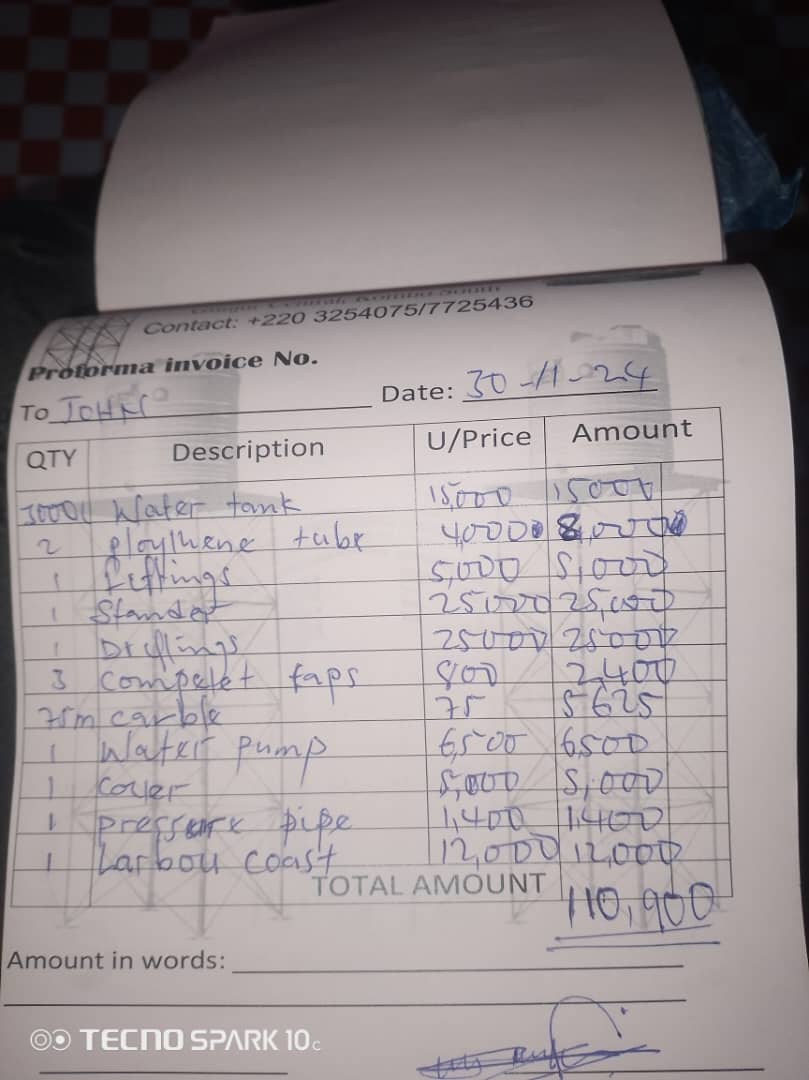 Contact: +220 3254075/7725436
Proforma invoice No.
To JOHN Date: 30-11-24
QTY Description U/Price Amount
3000l Water tank 15,000 15000
2 ploylhene tube 4,000 8,000
1 Fittings 5,000 5,000
1 Stander 25,000 25,000
1 Drillings 25000 25000
3 Compelet taps 800 2,400
75m carble 75 5625
1 Water pump 6,500 6500
1 Cover 5,000 5,000
1 pressure pipe 1,400 1,400
1 Larbou coast 12,000 12,000
TOTAL AMOUNT 110,900
Amount in words:
TECNO SPARK 10C